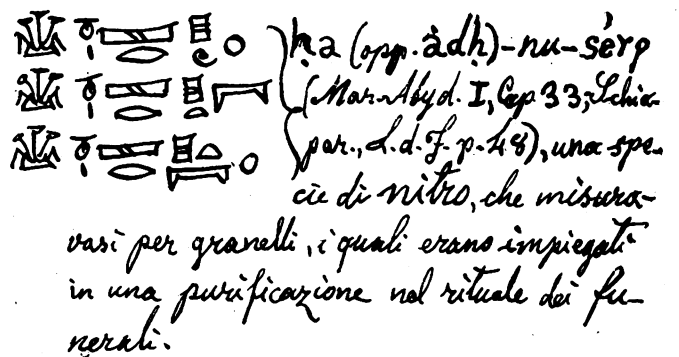 ḥa (opp. àdḥ)-nu-sérp
(Mar. Abyd. I, Cap 33; Schia-
par., L. d. F. p. 48), una spe-
cie di nitro, che misura-
vasi per granelli, i quali erano impiegati
in una purificazione nel rituale dei fu-
nerali.